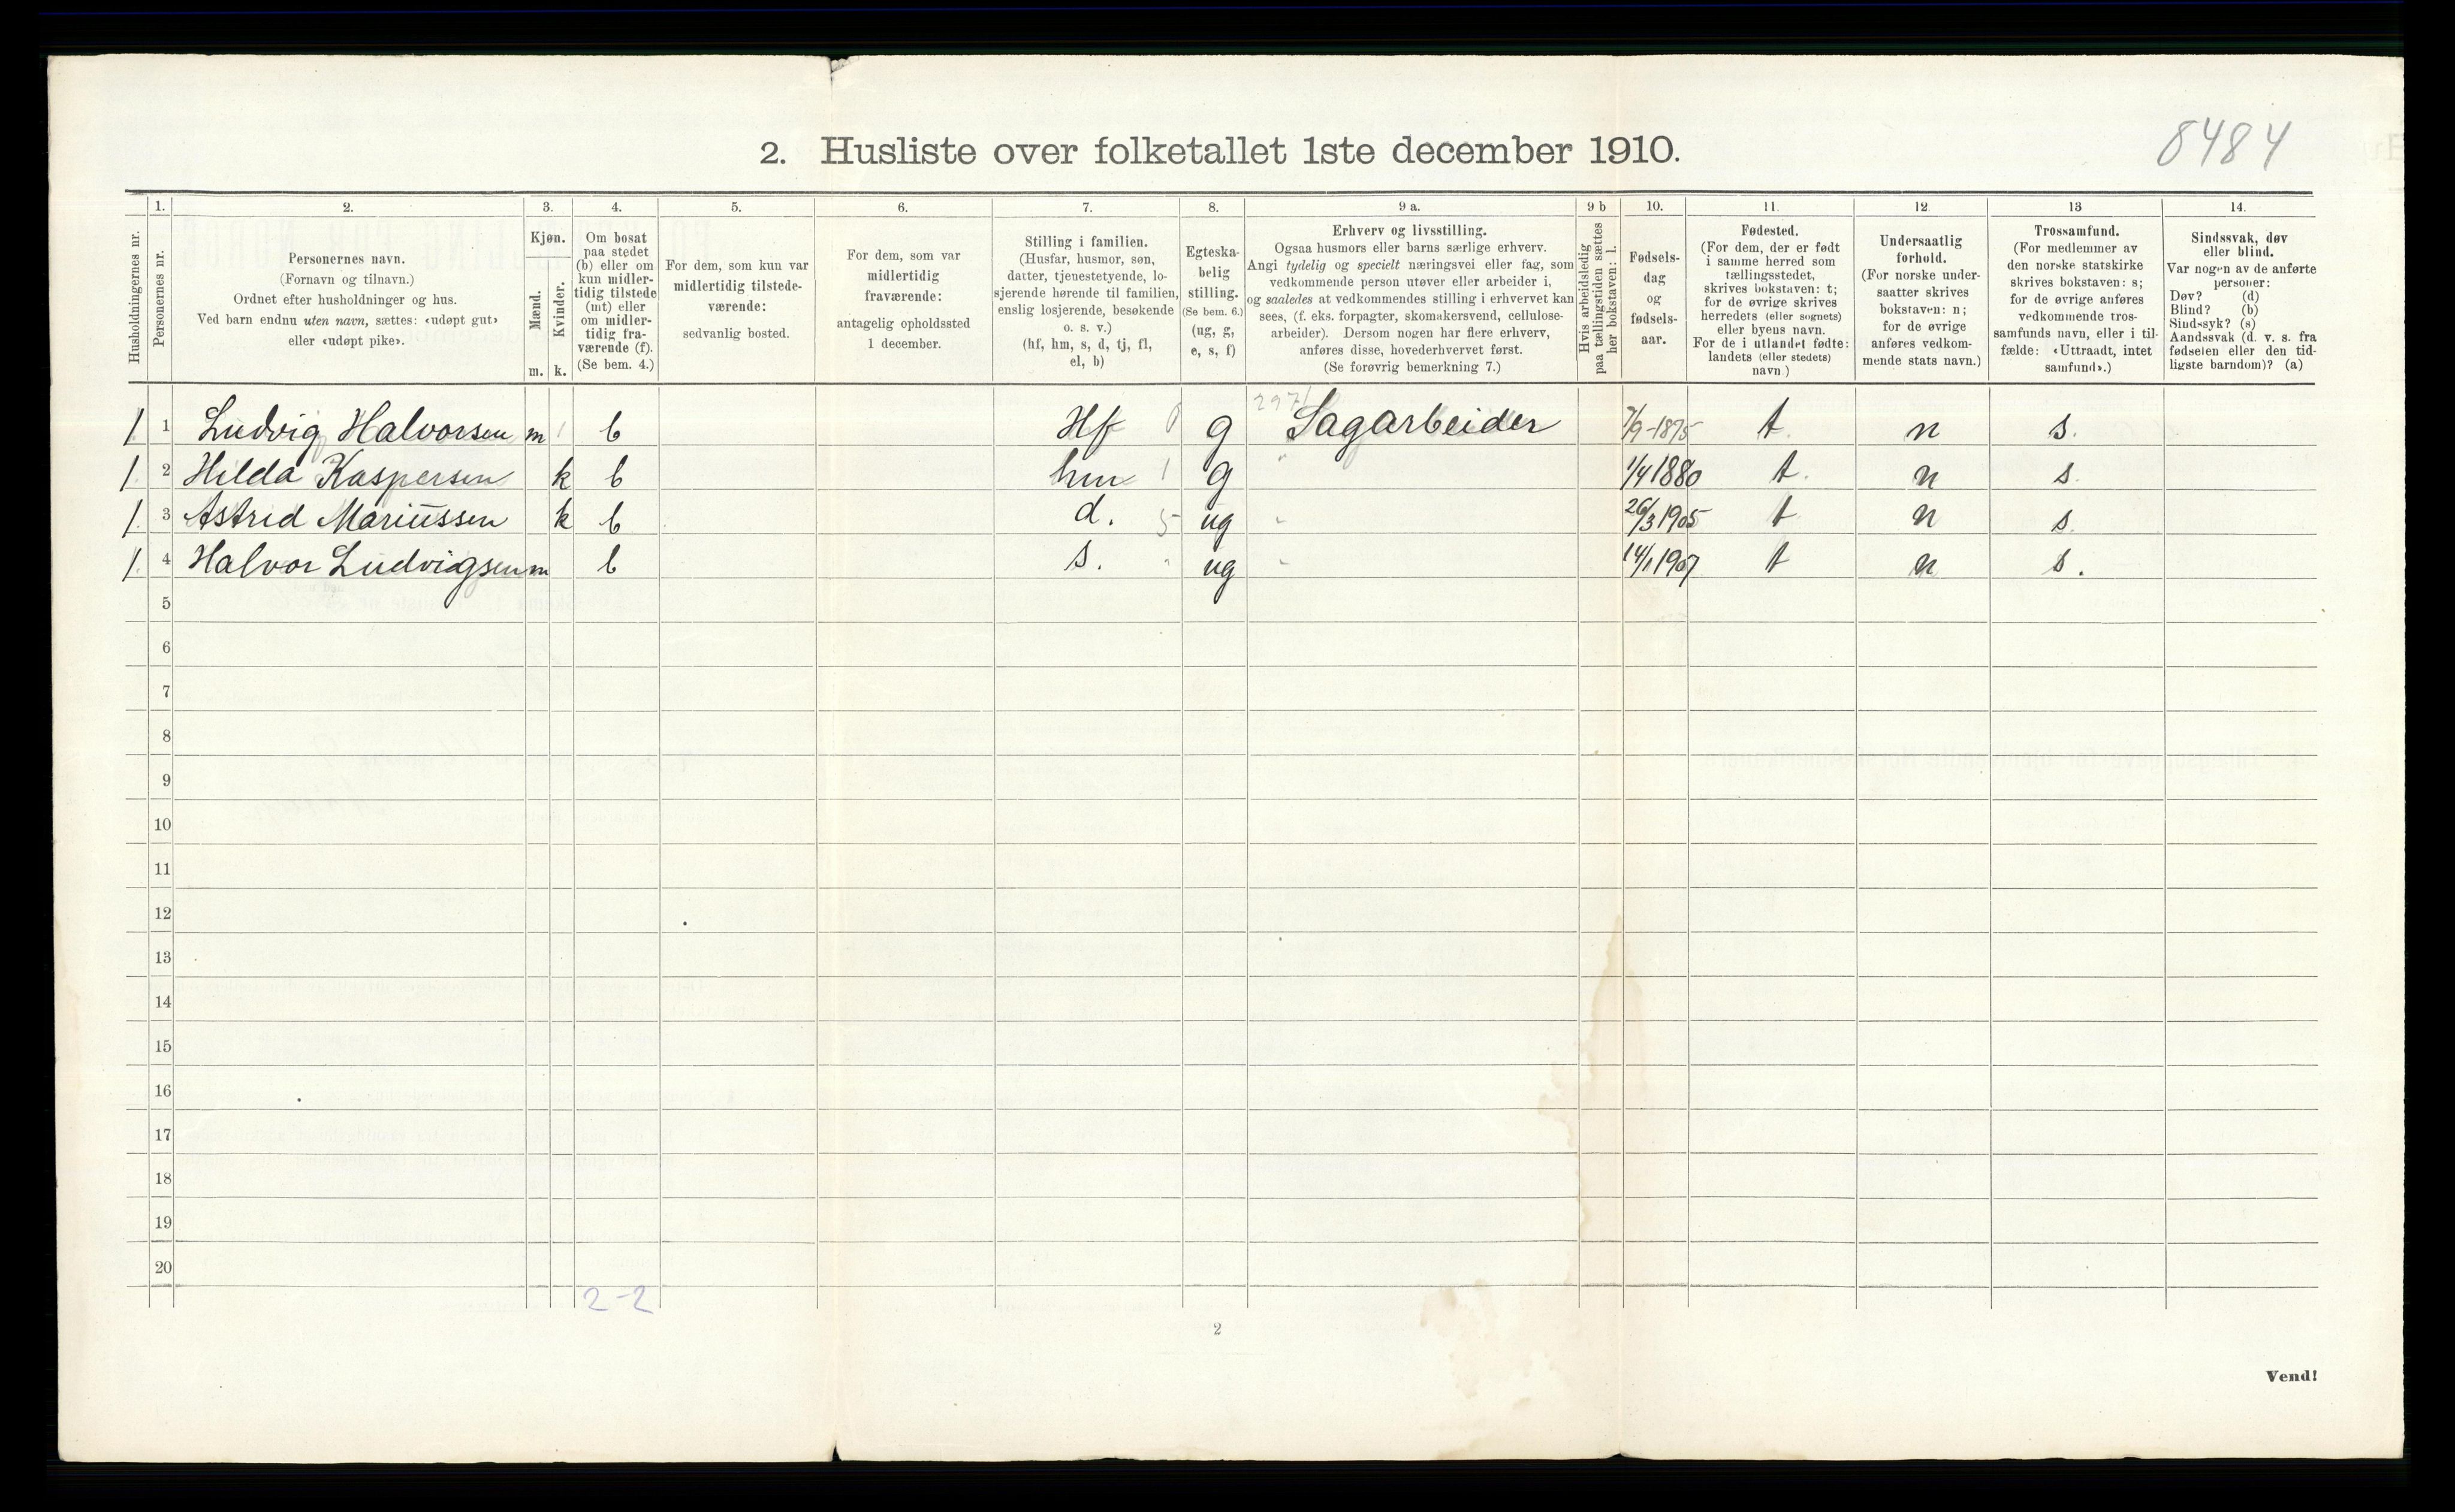 2. Husliste over folketallet 1ste december 1910.
8484
Husholdningernes nr.
1.
Personernes nr.
2.
Personernes navn.
(Fornavn og tilnavn.)
Ordnet efter husholdninger og hus.
Ved barn endnu uten navn, sættes: «udøpt gut»
eller «udøpt pike».
3.
Kjøn.
Mænd.
Kvinder.
m. k.
4.
Om bosat
paa stedet
(b) eller om
kun midler-
tidig tilstede
(mt) eller
om midler-
tidig fra-
værende (f).
(Se bem. 4.)
5.
For dem, som kun var
midlertidig tilstede-
værende:
sedvanlig bosted.
6.
For dem, som var
midlertidig
fraværende:
antagelig opholdssted
1 december.
7.
Stilling i familien.
(Husfar, husmor, søn,
datter, tjenestetyende, lo-
sjerende hørende til familien,
enslig losjerende, besøkende
o. s. v.)
(hf, hm, s, d, tj, fl,
el, b)
8.
Egteska-
belig
stilling.
(Se bem. 6.)
(ug, g,
e, s, f)
9 a.
Erhverv og livsstilling.
Ogsaa husmors eller barns særlige erhverv.
Angi tydelig og specielt næringsvei eller fag, som
vedkommende person utøver eller arbeider i,
og saaledes at vedkommendes stilling i erhvervet kan
sees, (f. eks. forpagter, skomakersvend, cellulose-
arbeider). Dersom nogen har flere erhverv,
anføres disse, hovederhvervet først.
(Se forøvrig bemerkning 7.)
9 b
Hvis arbeidsledig
paa tællingstiden sættes
her bokstaven: l.
10.
Fødsels-
dag
og
fødsels-
aar.
11.
Fødested.
(For dem, der er født
i samme herred som
tællingsstedet,
skrives bokstaven: t;
for de øvrige skrives
herredets (eller sognets)
eller byens navn.
For de i utlandet fødte:
landets (eller stedets)
navn)
12.
Undersaatlig
forhold.
(For norske under-
saatter skrives
bokstaven: n;
for de øvrige
anføres vedkom-
mende stats navn.)
13
Trossamfund.
(For medlemmer av
den norske statskirke
skrives bokstaven: s;
for de øvrige anføres
vedkommende tros-
samfunds navn, eller i til-
fælde: «Uttraadt, intet
samfund».)
14.
Sindssvak, døv
eller blind.
Var nogen av de anførte
personer:
Døv? (d)
Blind? (b)
Sindssyk? (s)
Aandssvak (d. v. s. fra
fødselen eller den tid-
ligste barndom)? (a)
1. 1 Ludvig Halvorsen m b Hf g 2971 Sagarbeider 7/9-1875 t. n s.
1. 2 Hilda Kaspersen k b hm 1 g " 1/4 1880 t. n s.
1. 3 Astrid Mariussen k b d. 5 ug - 26/3 1905 t n s.
1. 4 Halvor Ludvigsen m b s. " ug - 14/1 1907 t n s.
5
6
7
8
9
10
11
12
13
14
15
16
17
18
19
20
2-2
2
Vend!